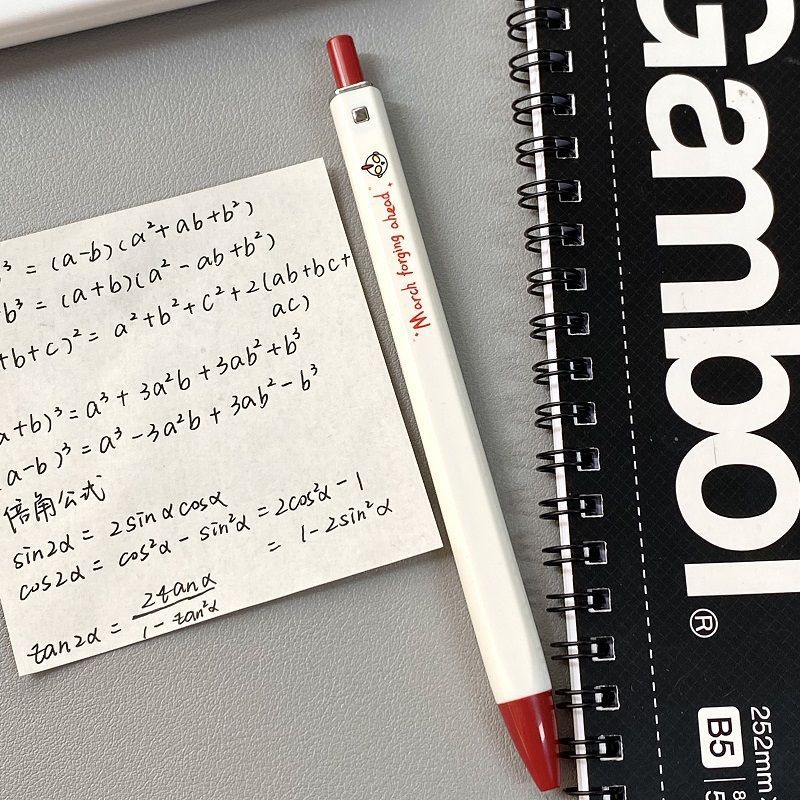 ³ = (a-b)(a²+ab+b²)
b³ = (a+b)(a²-ab+b²)
+b+c)² = a²+b²+c²+2(ab+bc+
ac)
a+b)³ = a³+3a²b+3ab²+b³
(a-b)³ = a³-3a²b+3ab²-b³
倍角公式
sin2α = 2sinαcosα
cos2α = cos²α-sin²α = 2cos²α-1
= 1-2sin²α
tan2α = 2tanα / 1-tan²α
March forging ahead
Gambol®
252mm
B5